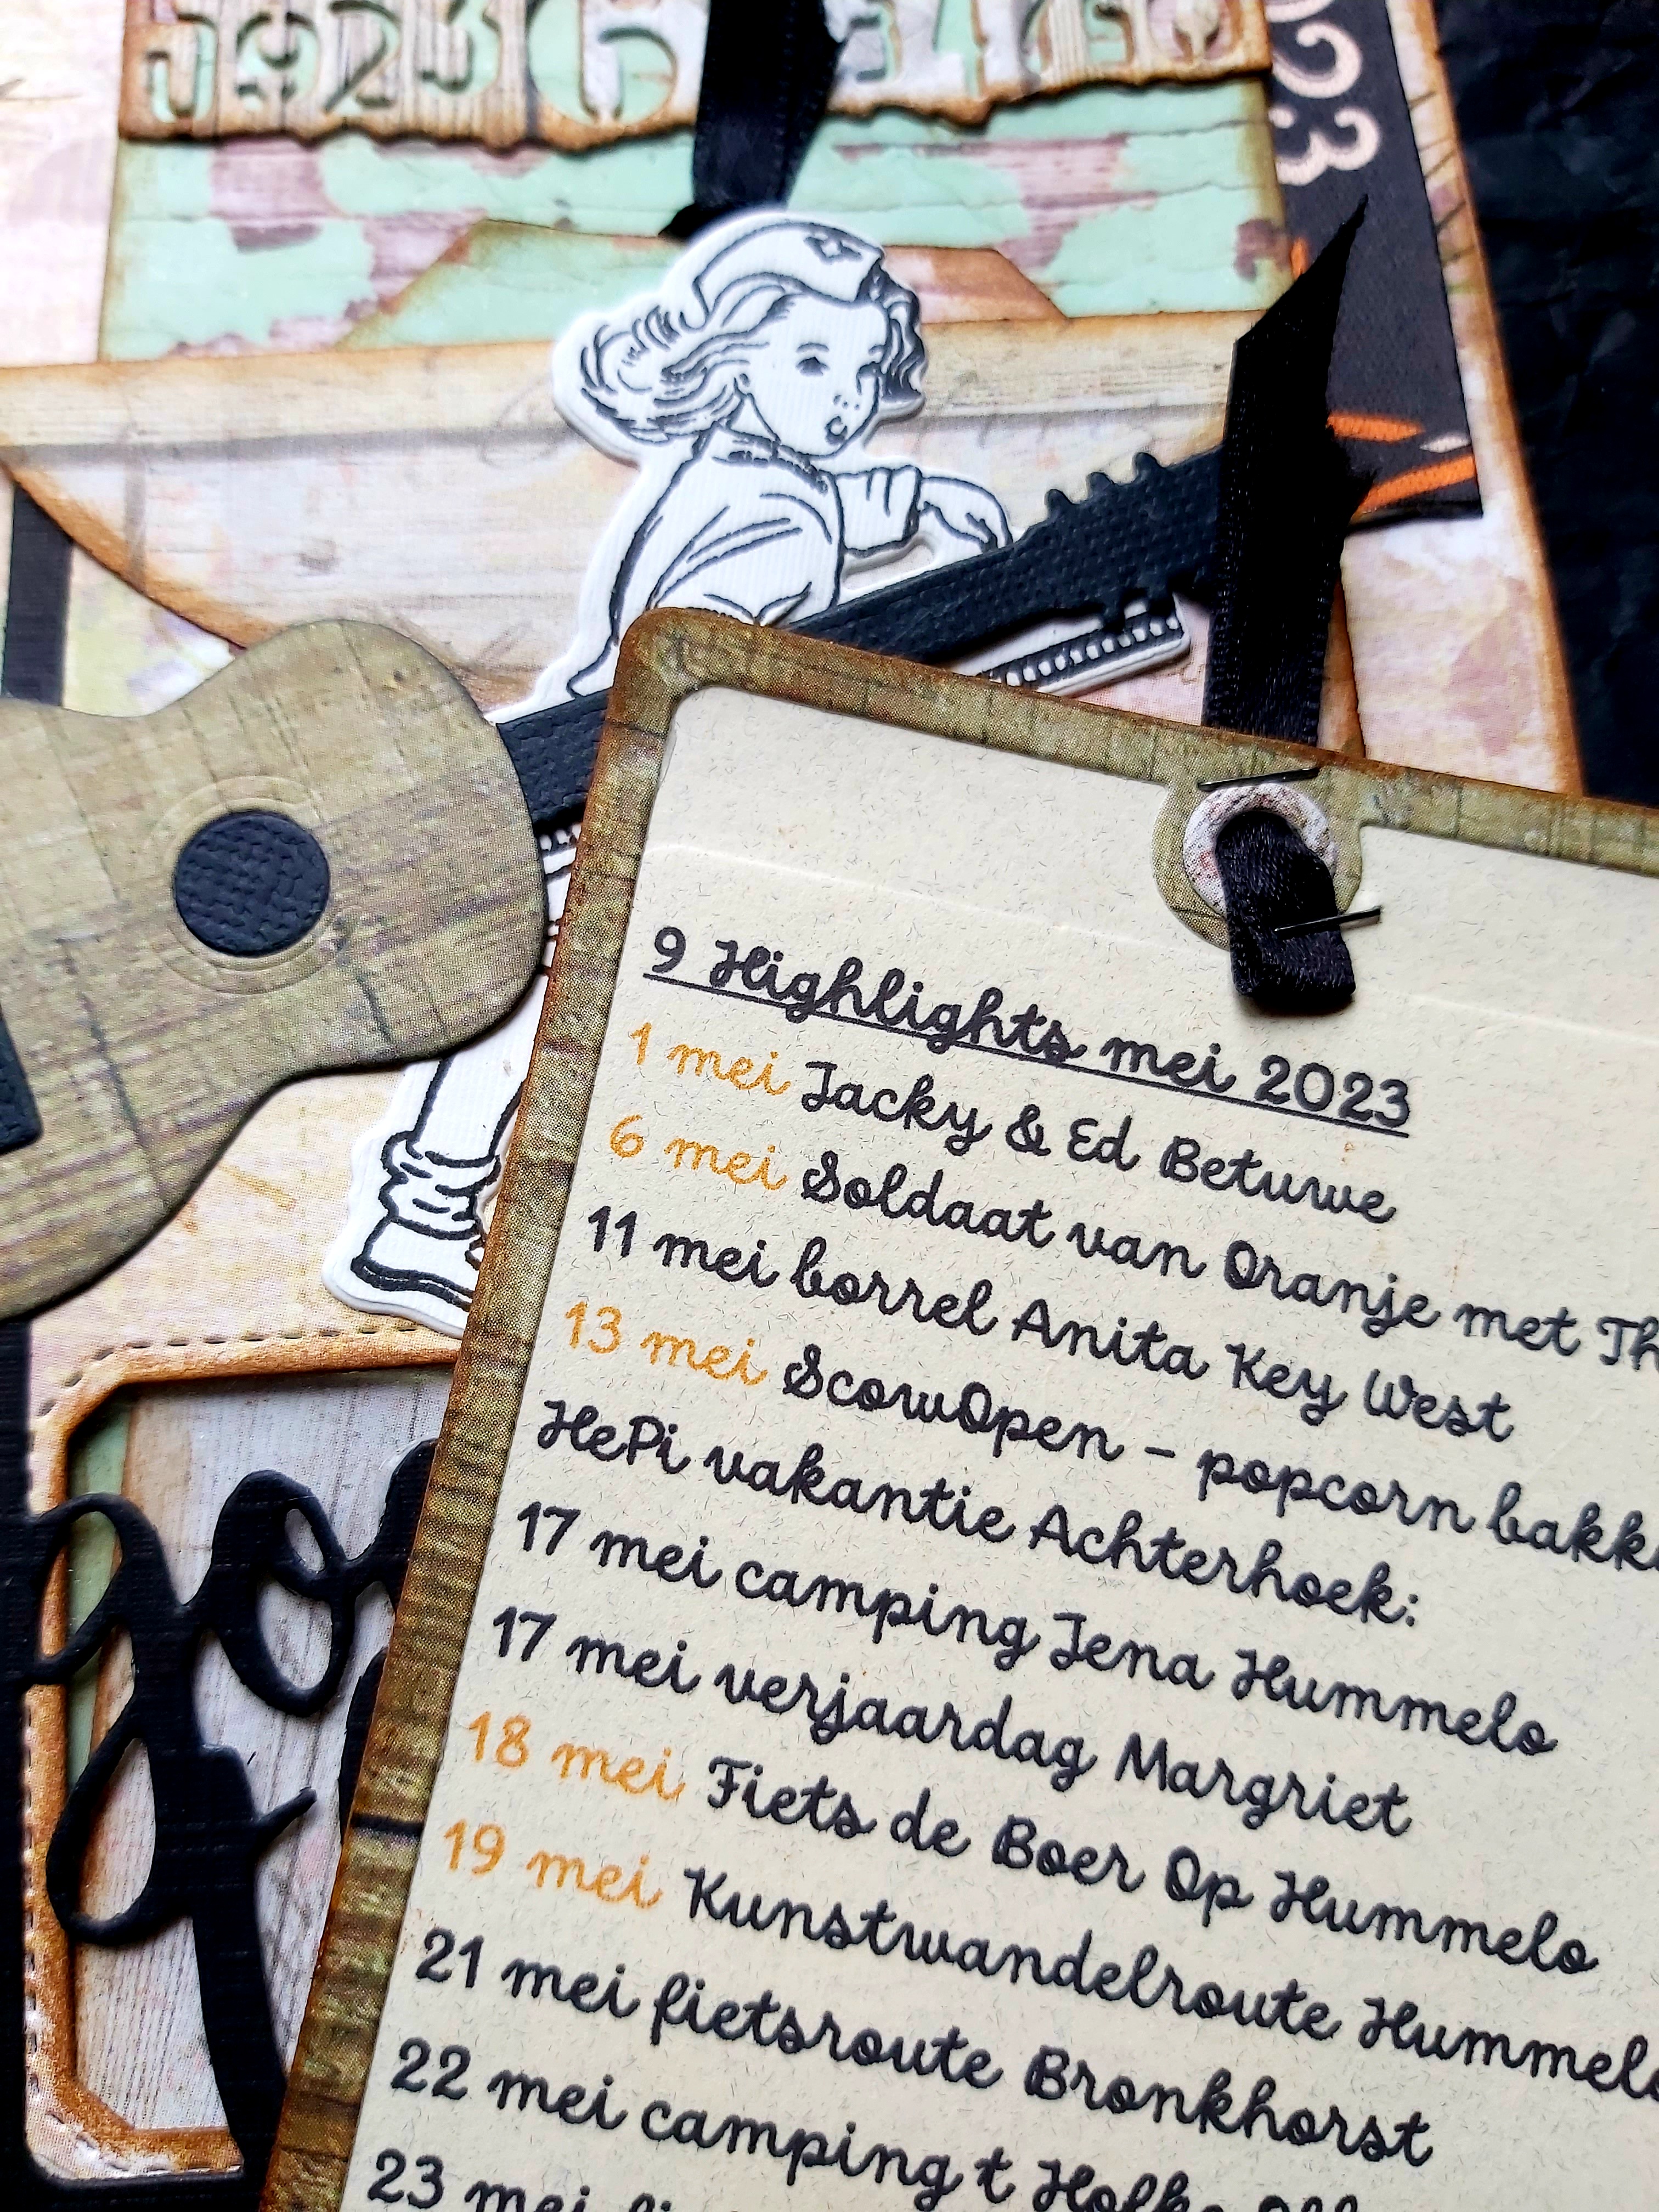 1923
2023
9 Highlights mei 2023
1 mei Jacky & Ed Betuwe
6 mei Soldaat van Oranje met
11 mei borrel Anita Key West
13 mei ScowOpen – popcorn
HePi vakantie Achterhoek:
17 mei camping Jena Hummelo
17 mei verjaardag Margriet
18 mei Fiets de Boer Op Hummelo
19 mei Kunstwandelroute Hummelo
21 mei fietsroute Bronkhorst
22 mei camping t
23 mei